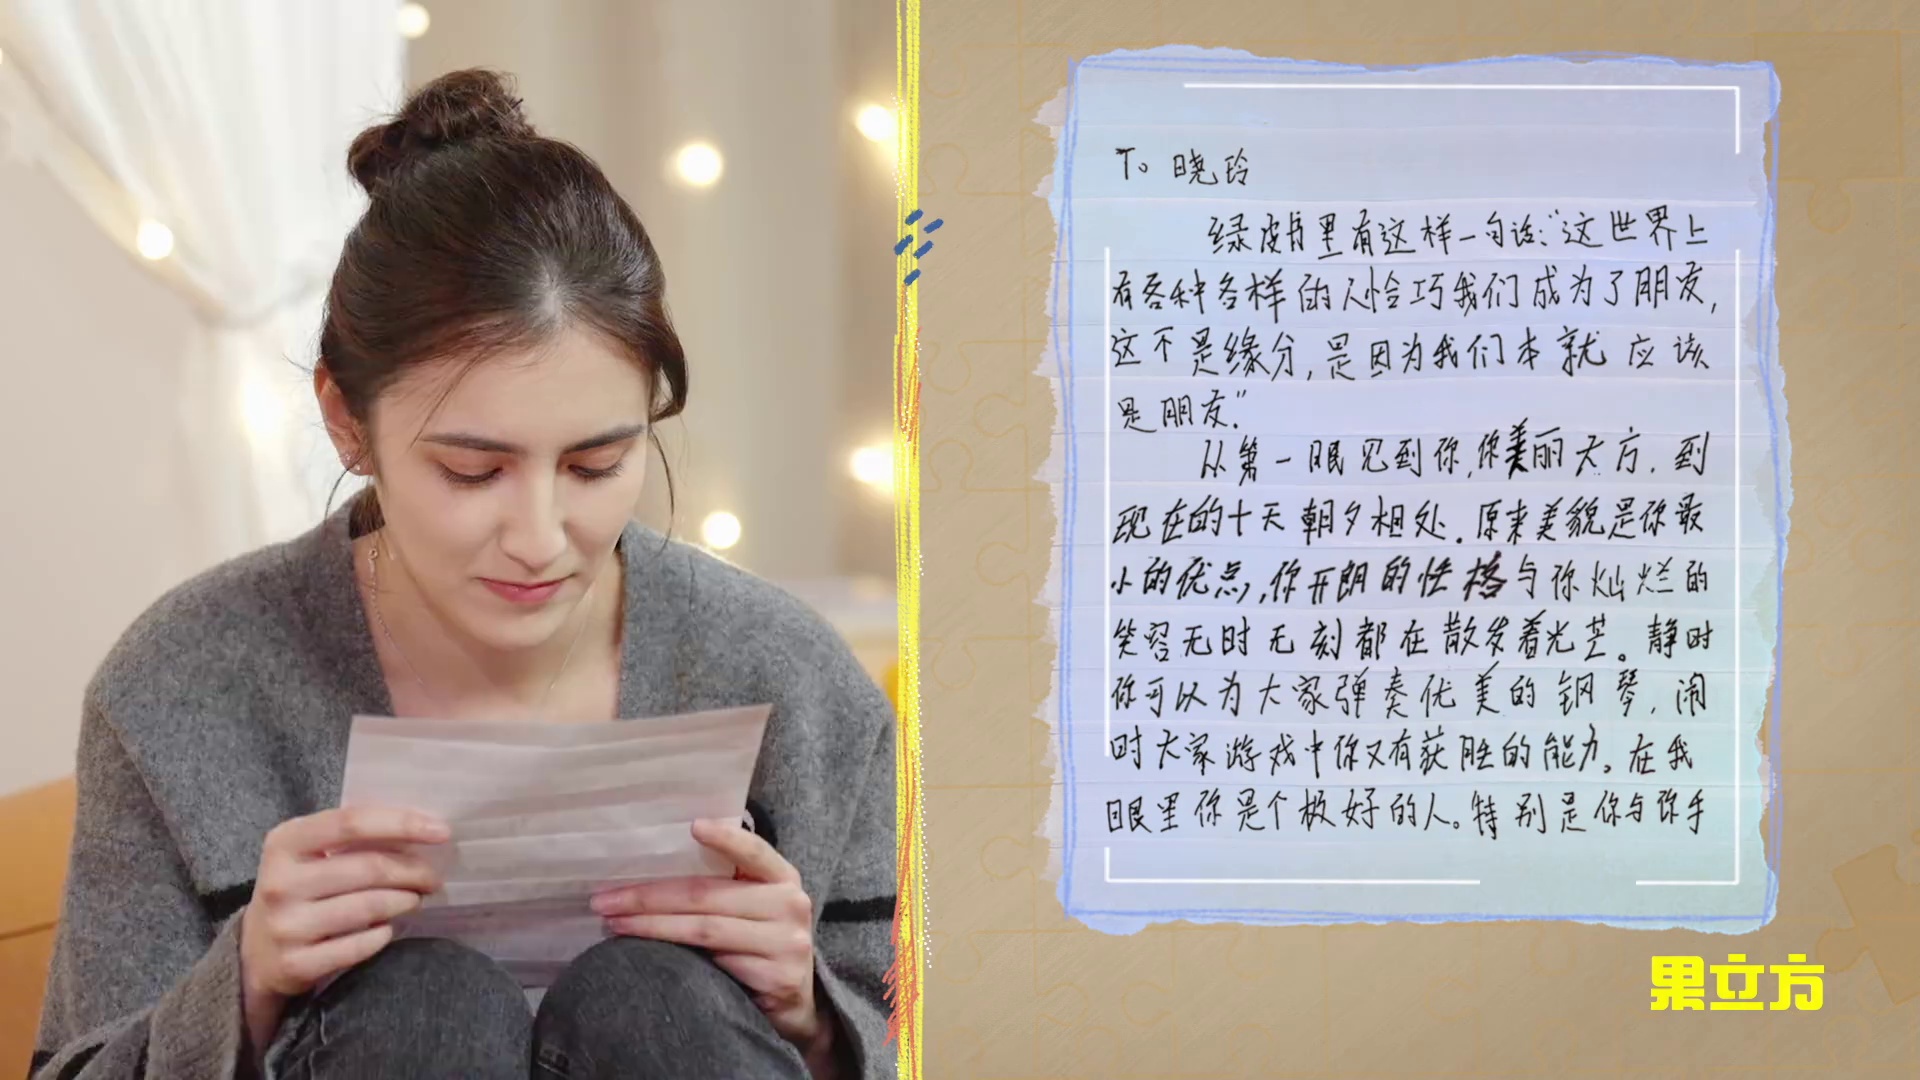 To 晓玲
绿皮书里有这样一句话:“这世界上
有各种各样的人恰巧我们成为了朋友,
这不是缘分,是因为我们本就应该
是朋友.”
从第一眼见到你,你美丽大方.到
现在的十天朝夕相处.原来美貌是你最
小的优点,你开朗的性格与你灿烂的
笑容无时无刻都在散发着光芒。静时
你可以为大家弹奏优美的钢琴.闹
时大家游戏中你又有获胜的能力。在我
眼里你是个极好的人。特别是你与你手
果立方